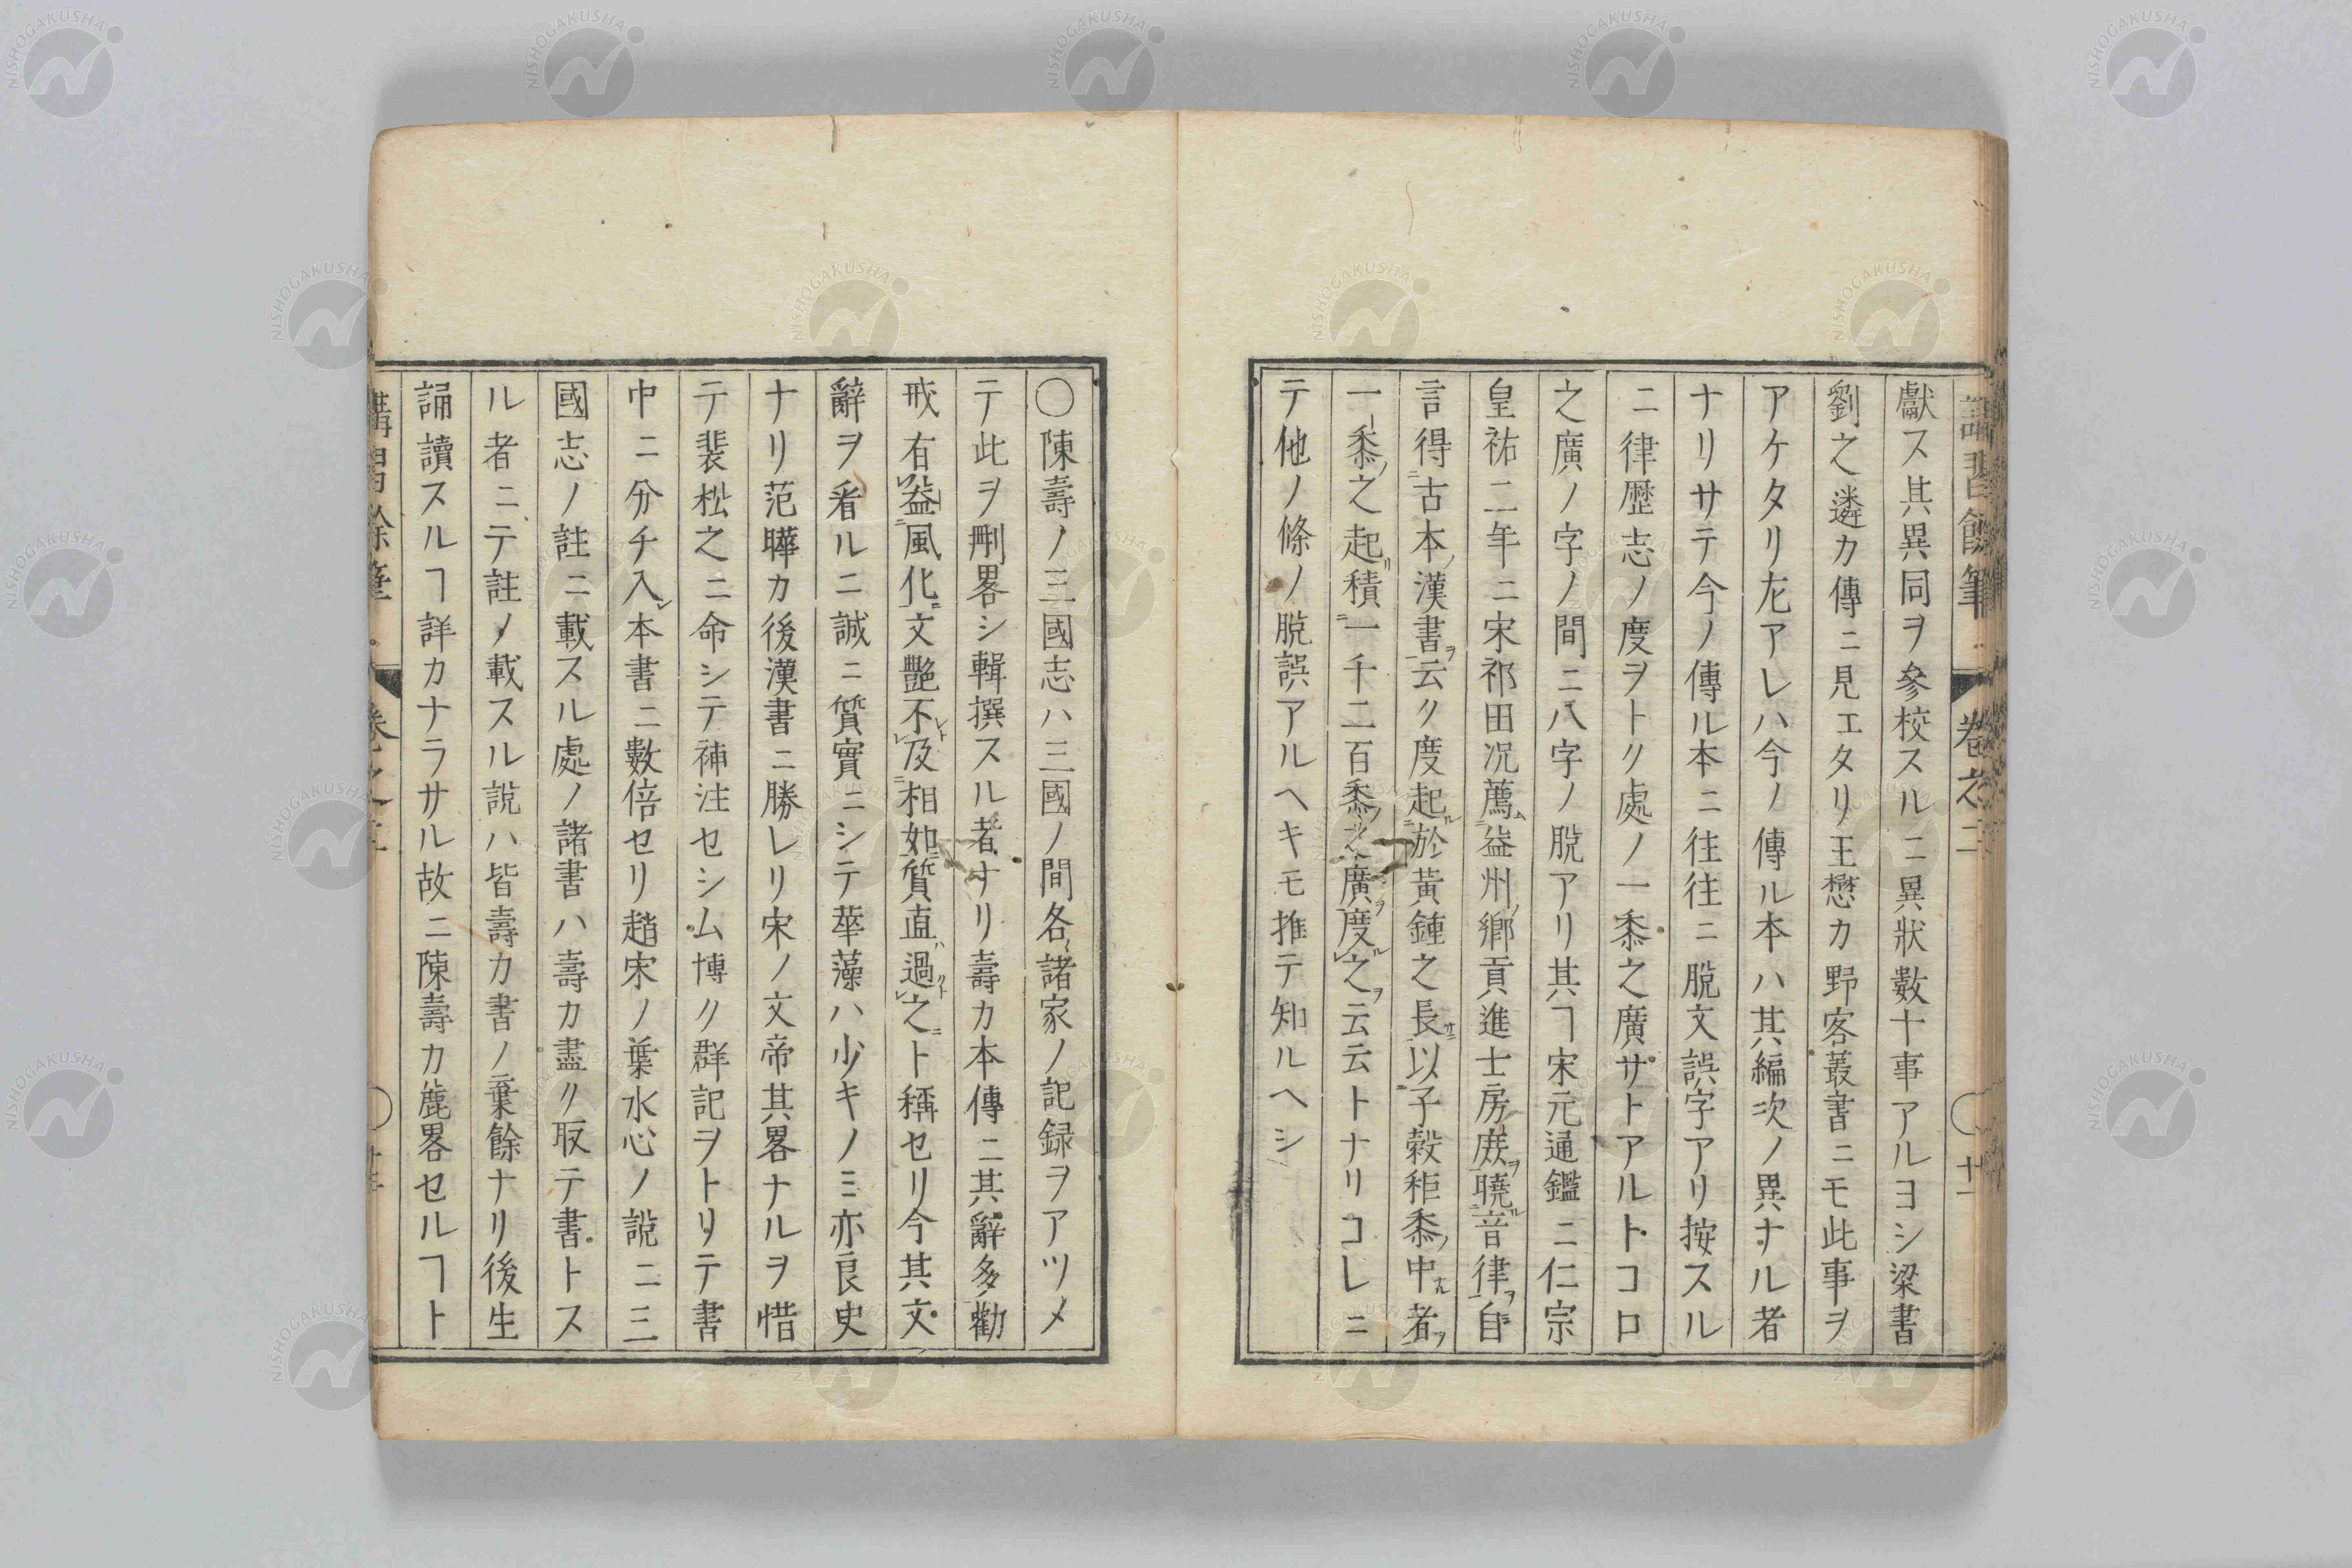 講習餘筆 卷之二 〇廿一
獻ス其異同ヲ參校スルニ異狀數十事アルヨシ梁書
劉之遴カ傳ニ見エタリ王懋カ野客叢書ニモ此事ヲ
アケタリ左アレハ今ノ傳ル本ハ其編次ノ異ナル者
ナリサテ今ノ傳ル本ニ往往ニ脫文誤字アリ按スル
ニ律歷志ノ度ヲトク處ノ一黍之廣サトアルトコロ
之廣ノ字ノ間ニ八字ノ脫アリ其ヿ宋元通鑑ニ仁宗
皇祐二年ニ宋祁田况薦益州ノ鄉貢進士房庶曉音律自
言得古本漢書云ク度起於黃鍾之長以子穀秬黍中者
一黍之起積一千二百黍之廣度之云云トナリコレニ
テ他ノ條ノ脫誤アルヘキモ推テ知ルヘシ
〇陳壽ノ三國志ハ三國ノ間各諸家ノ記録ヲアツメ
テ此ヲ刪畧シ輯撰スル者ナリ壽カ本傳ニ其辭多勸
戒有益風化文艷不及相如質直過之ト稱セリ今其文
辭ヲ看ルニ誠ニ質實ニシテ華藻ハ少キノミ亦良史
ナリ范曄カ後漢書ニ勝レリ宋ノ文帝其畧ナルヲ惜
テ裴松之ニ命シテ補注セシム博ク群記ヲトリテ書
中ニ分チ入本書ニ數倍セリ趙宋ノ葉水心ノ說ニ三
國志ノ註ニ載スル處ノ諸書ハ壽カ盡ク取テ書トス
ル者ニテ註ノ載スル說ハ皆壽カ書ノ棄餘ナリ後生
誦讀スルヿ詳カナラサル故ニ陳壽カ麁畧セルヿト
NISHOGAKUSHA